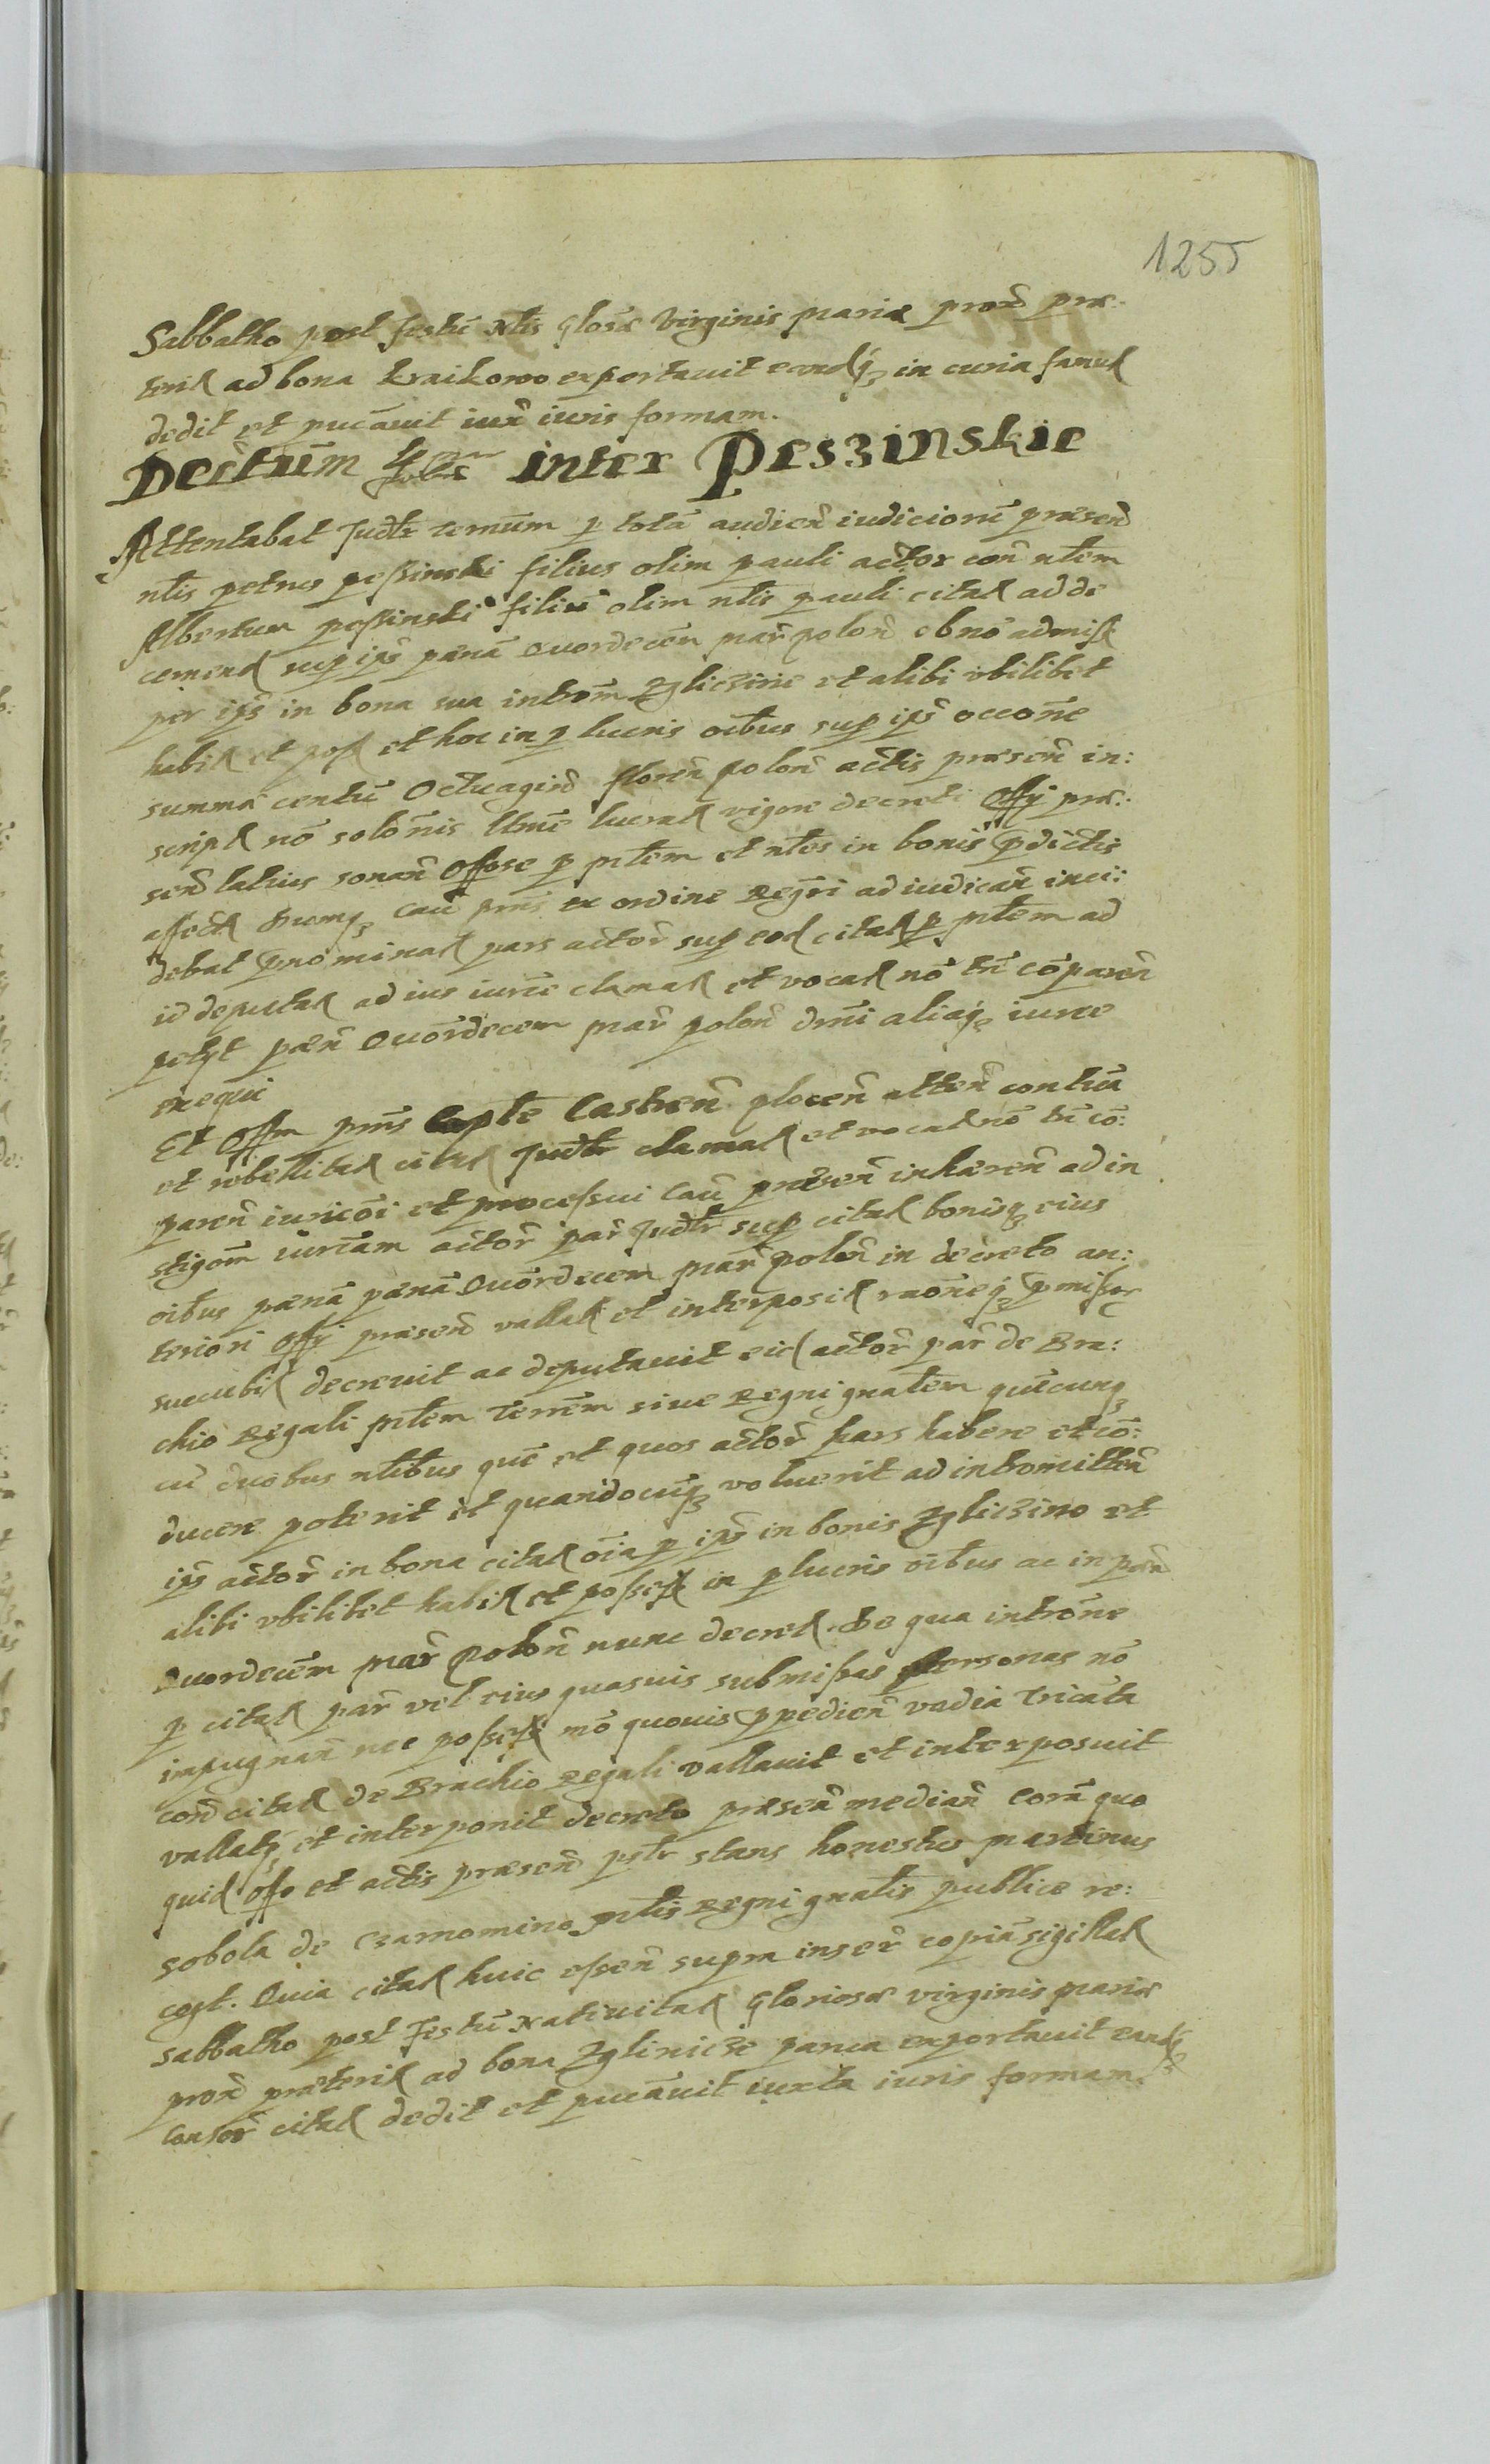 1255
Sabbatho post festū Ntis Glosæ Virginis Mariæ prox̃ præ:
terit ad bona Kraikowo exportavit eandq̃ in curia famul
dedit et pucāuit iux̃ iuris formam.
Decretum inter Peszinskie
Attentabat Judtr termm p totā audien̄ iudiciorū præsen̄
ntis petrus peßinski filius olim pauli actor con̄ ntem
Albertum peßinski filiū olim ntis pauli citat ad de
cernend sup ip̄s pænā Quordecem mar̄ polon̄ ob nō admiss
per ip̄s in bona sua introm̄ Zgliczine et alibi vbilibet
habit et poss et hoc in p lucris oibus sup ip̄s occōne
summæ centū Octuagin̄ floren̄ polon̄ actis præsen̄ in:
script nō solōnis ltme lucrat vigore decreti Offj præ:
sen̄ latius sonan̄ Offose p mtem et ntes in bonis pdictis
affect dumq̃ cau pn̄s ex ordine Regri ad iudican̄ inci:
debat pnominat pars actor̄ sup eod citat p mtem ad
id deputat ad ius iurne clamat et vocat nō tn̄ cōparen̄
petyt pæn̄ Quordecem mar̄ polon̄ dmi aliaq̃ iurne
exequi
Et Offm pn̄s Capte Castren̄ plocen̄ atten̄ contuā
et rebellitat citat Judtr clamat et vocat nō tn̄ cō:
paren̄ iuricōi et processui Cau præsen̄ inhæren̄ ad in
stigōm iurnam actor̄ par Judtr sup citat bonisq̃ eius
oibus pænā pænā Quordecem mar̄ polon̄ in decreto an:
teriori Offj præsen̄ vallat et interposit raōneq̃ pmißor
succubit decrevit ac deputavit eid actor̄ par̄ de Bra:
chio Regali mtem Terrēm siue Regni gnatem quēcunq̃
cū duobus ntibus quē et quos actor̄ pars habere et cō:
ducere poterit et quandocūq̃ voluerit ad intromitten̄
ip̄s actor̄ in bona citat oīa p ip̄s in bonis Zgliczino et
alibi vbilibet habit et poßess in p lucris oibus ac in pæn̄
Quordecēm mar̄ Polon̄ nunc decret. De qua introne
p citat par̄ vel eius quasuis submißas personas nō
impugnan̄ nec poßess mō quouis ppedien̄ vadia tricata
con̄ citat de Brachio Regali vallauit et interposuit
vallatq̃ et interponit decreto præsen̄ median̄ Corā quo
quid Offo et actis præsen̄ pstr stans honestus Martinus
Sobola de Czarnomino mtis Regni gnatis publice re:
cogt. Quia citat huic eßen̄ supra inser̄ copiā sigillat
Sabbatho post festū Nativitat Gloriosæ virginis Mariæ
prox̃ præterit ad bona Zgliniczé parua exportauit eandq̃
Consor̄ citat dedit et pucāuit iuxta iuris formam.